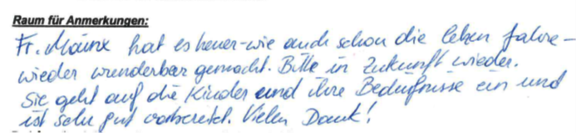 Raum für Anmerkungen:
Fr. Mainx hat es heuer - wie auch schon die leben Jahre -
wieder wunderbar gemacht. Bitte in Zukunft wieder.
Sie geht auf die Kinder und ihre Bedürfnisse ein und
ist sehr gut vorbereitet. Vielen Dank!